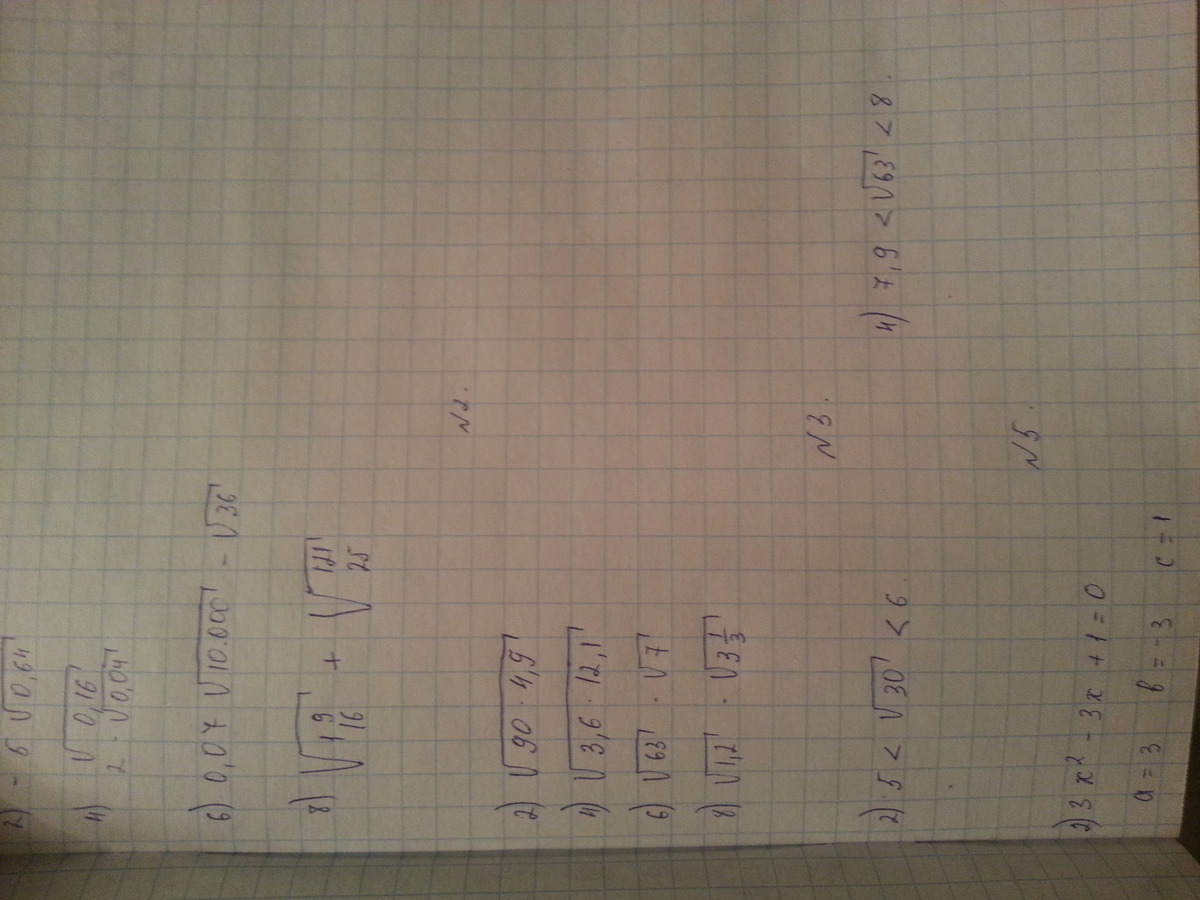 2) - 6 √0,64
4) √0,16
2 · √0,04
6) 0,07 √10.000 - √36
8) √1 9/16 + √121/25
N2.
2) √90 · 4,9
4) √3,6 · 12,1
6) √63 · √7
8) √1,2 · √3 1/3
N3.
2) 5 < √30 < 6. 4) 7,9 < √63 < 8.
N5.
2) 3x² - 3x + 1 = 0
a = 3 b = -3 c = 1